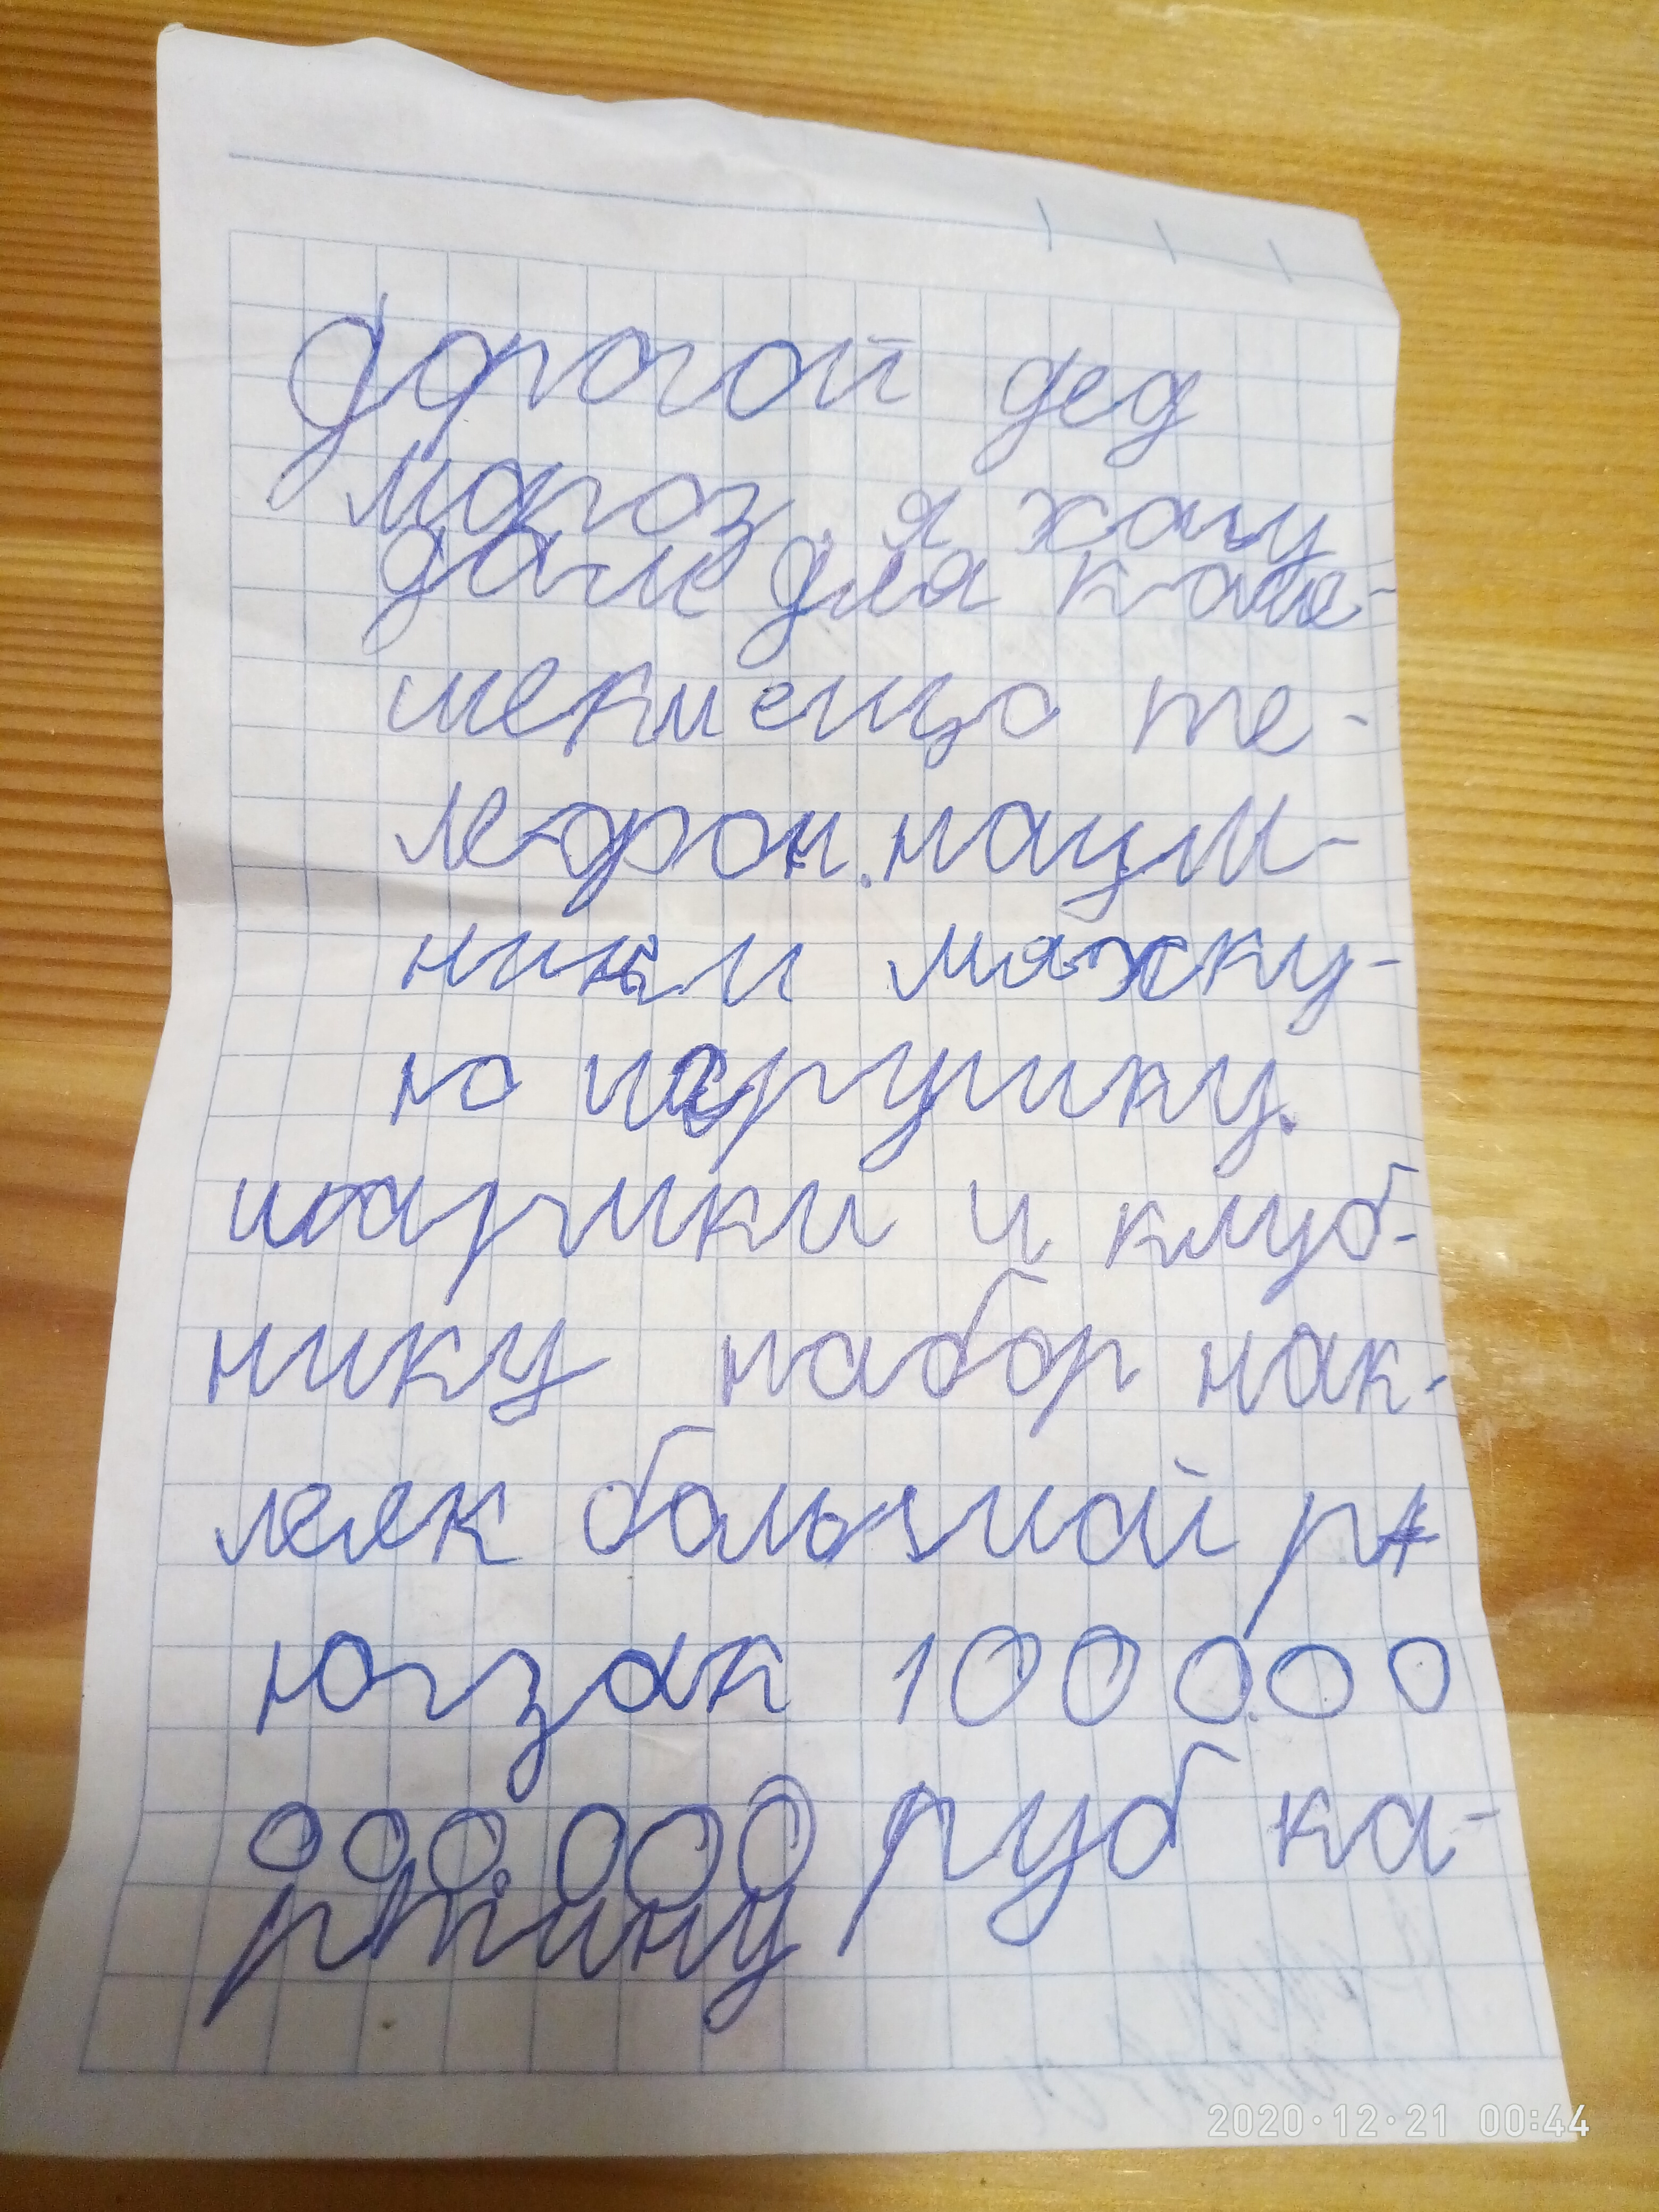 Дорогой дед
мороз. я хачу
даче для кале-
шекшенцо те-
лефон. наущ-
ники мяхку-
ю игрушку.
шарики и клуб-
нику набор нак-
леек большой р
югзак 100000
000.000 руб ка-
ртину
2020·12·21 00:44